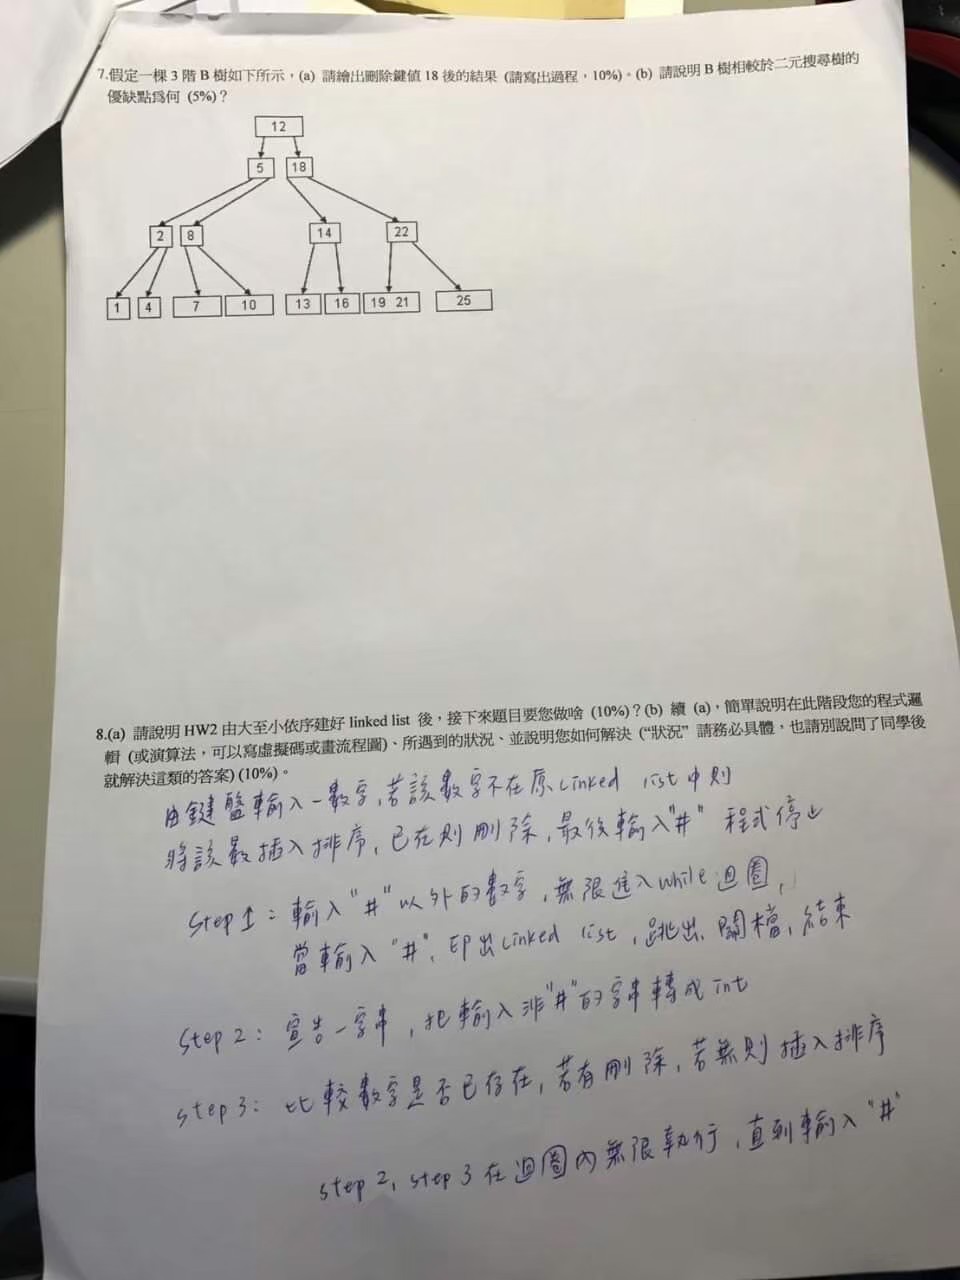 7.假定一棵 3 階 B 樹如下所示，(a) 請繪出刪除鍵值 18 後的結果 (請寫出過程，10%)。(b) 請說明 B 樹相較於二元搜尋樹的
優缺點為何 (5%)？
12
5 18
2 8 14 22
1 4 7 10 13 16 19 21 25
8.(a) 請說明 HW2 由大至小依序建好 linked list 後，接下來題目要您做啥 (10%)？(b) 續 (a)，簡單說明在此階段您的程式邏
輯 (或演算法，可以寫虛擬碼或畫流程圖)、所遇到的狀況、並說明您如何解決 (“狀況” 請務必具體，也請別說問了同學後
就解決這類的答案) (10%)。
由鍵盤輸入一數字,若該數字不在原Linked list中則
將該數插入排序,已在則刪除,最後輸入"#" 程式停止
Step 1：輸入"#"以外的數字,無限進入while迴圈,
當輸入"#",印出Linked list,跳出,關檔,結束
Step 2：宣告一字串,把輸入非"#"的字串轉成int
step 3：比較數字是否已存在,若有刪除,若無則插入排序
step 2, step 3 在迴圈內無限執行,直到輸入"#"